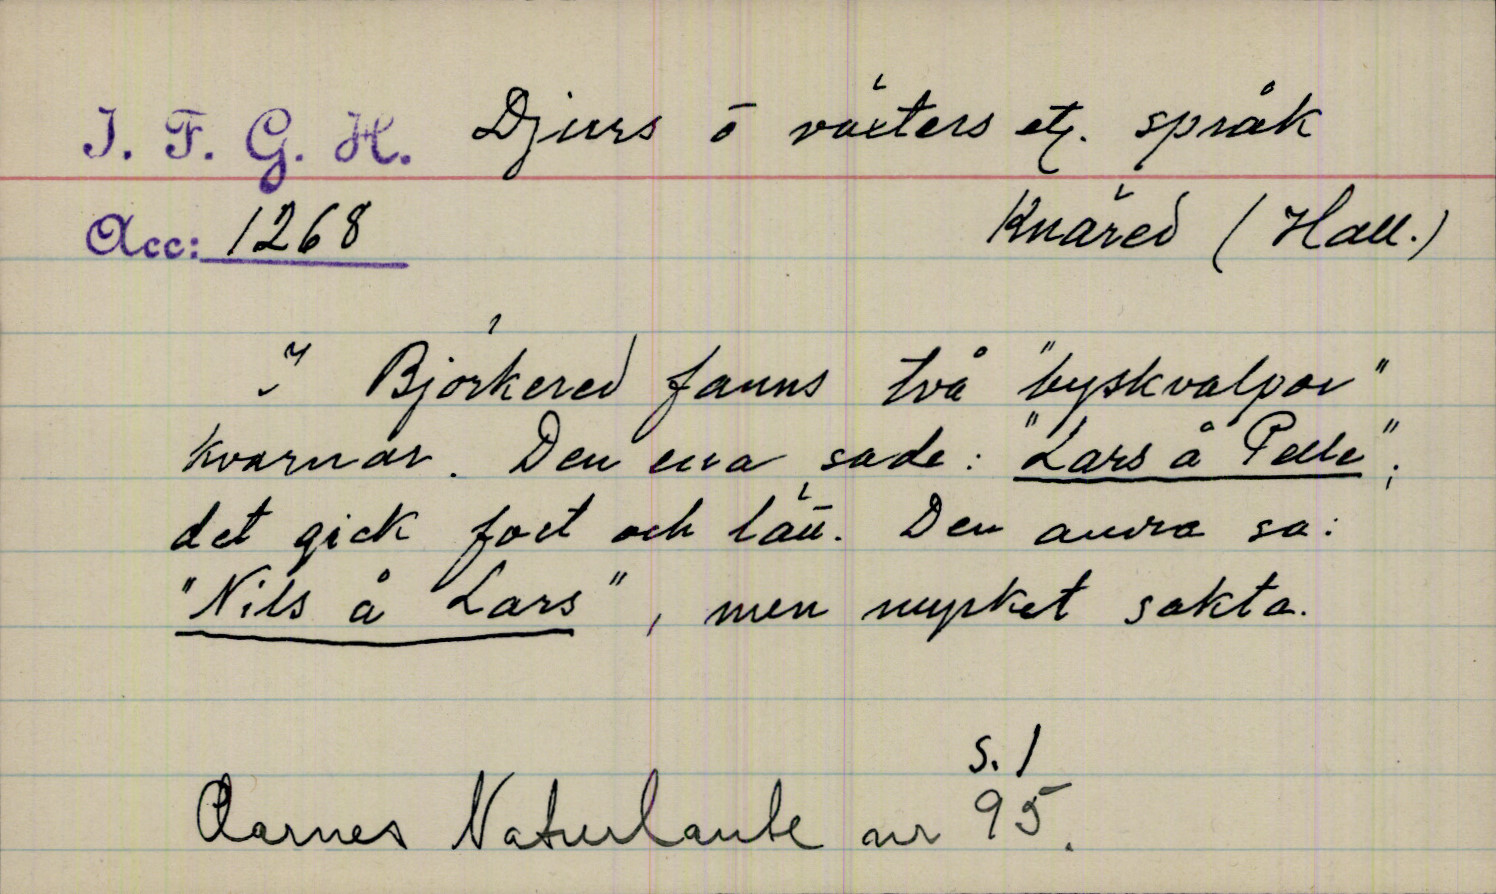 I. F. G. H. Djurs o växters etc. språk
Acc: 1268 Knäred (Hall.)
I Björkered fanns två "byskvalpor"
kvarnar. Den ena sade: "Lars å Pelle";
det gick fort och lätt. Den andra sa:
"Nils å Lars", men mycket sakta.
s. 1
Aarnes Naturlaute nr 95.